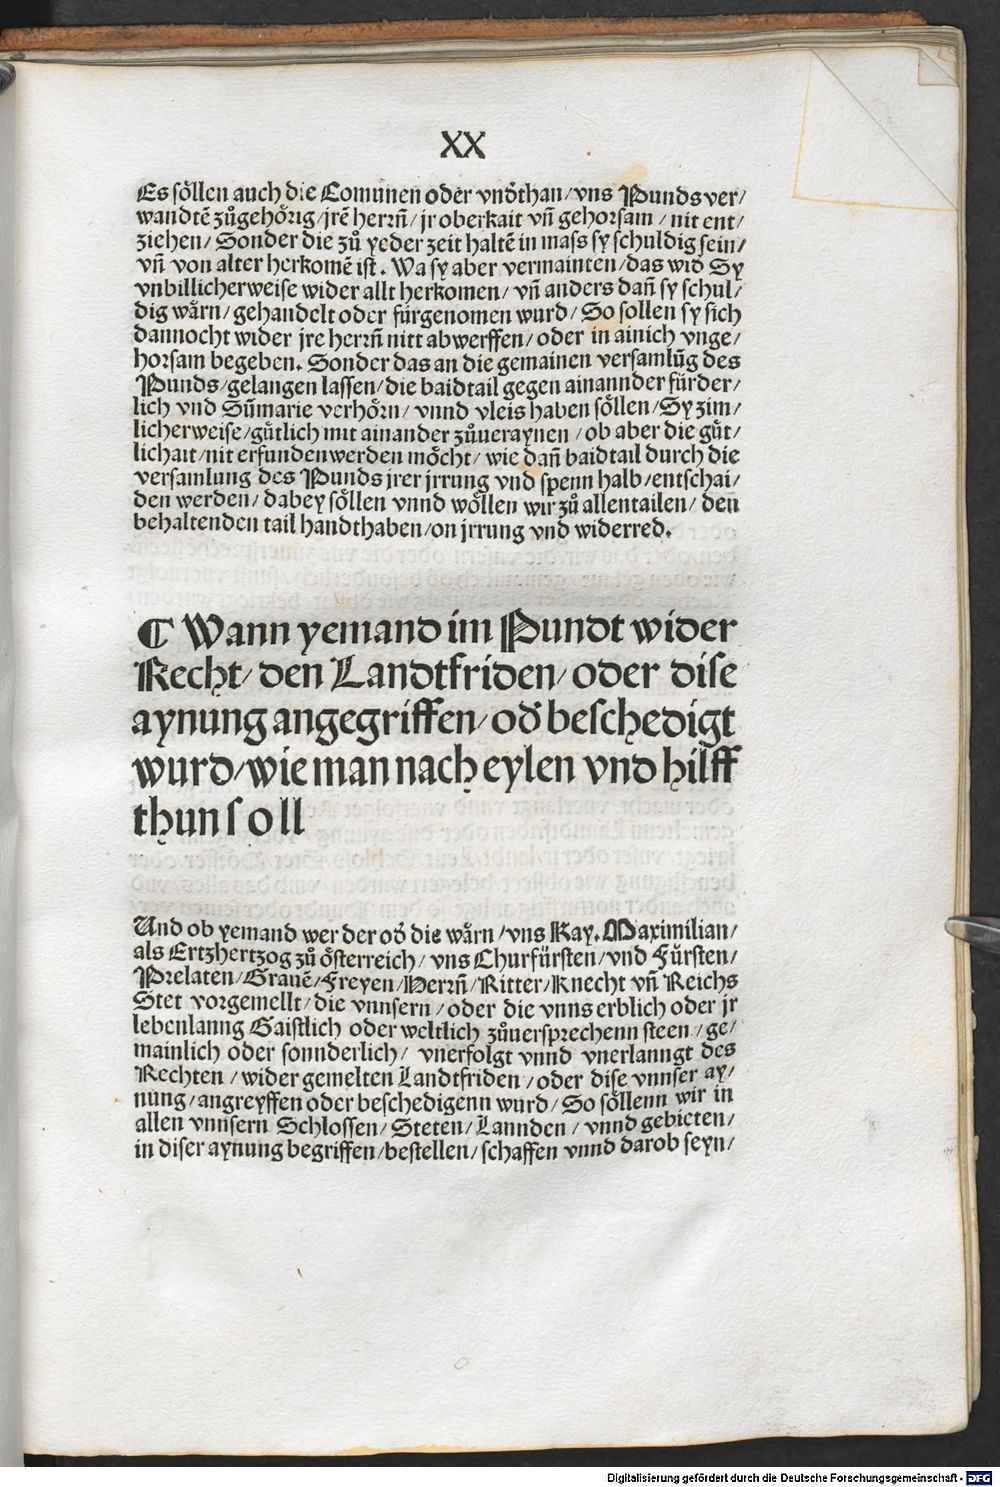 XX
Es söllen auch die Comunen oder vnd'than/vns Punds ver/
wandtē zůgehörig/jrē herrn̄/jr oberkait vn̄ gehorsam/nit ent/
ziehen/Sonder die zů yeder zeit haltē in mass sy schuldig sein/
vn̄ von alter herkomē ist. Wa sy aber vermainten/das wid' Sy
vnbillicherweise wider allt herkomen/vn̄ anders dan̄ sy schul/
dig wårn/gehandelt oder fürgenomen wurd/So sollen sy sich
dannocht wider jre herrn̄ nitt abwerffen/oder in ainich vnge/
horsam begeben. Sonder das an die gemainen versamlūg des
Punds/gelangen lassen/die baidtail gegen ainannder fürder/
lich vnd Sūmarie verhörn/vnnd vleis haben söllen/Sy zim/
licherweise/gütlich mit ainander zůueraynen/ob aber die güt/
lichait/nit erfunden werden möcht/wie dan̄ baidtail durch die
versamlung des Punds jrer jrrung vnd spenn halb/entschai/
den werden/dabey söllen vnnd wöllen wir zů allentailen/den
behaltenden tail handthaben/on jrrung vnd widerred.
¶ Wann yemand im Pundt wider
Recht/den Landtfriden/oder dise
aynung angegriffen/od' beschedigt
wurd/wie man nach eylen vnd hilff
thun soll
Und ob yemand wer der od' die wårn/vns Kay. Maximilian/
als Ertzhertzog zů österreich/vns Churfürsten/vnd Fürsten/
Prelaten/Grauē/Freyen/Herrn̄/Ritter/Knecht vn̄ Reichs
Stet vorgemellt/die vnnsern/oder die vnns erblich oder jr
lebenlanng Gaistlich oder weltlich zůuersprechenn steen/ge/
mainlich oder sonnderlich/ vnerfolgt vnnd vnerlanngt des
Rechten/wider gemelten Landtfriden/oder dise vnnser ay/
nung/angreyffen oder beschedigenn wurd/So söllenn wir in
allen vnnsern Schlossen/Steten/Lannden/vnnd gebieten/
in diser aynung begriffen/bestellen/schaffen vnnd darob seyn/
Digitalisierung gefördert durch die Deutsche Forschungsgemeinschaft - DFG